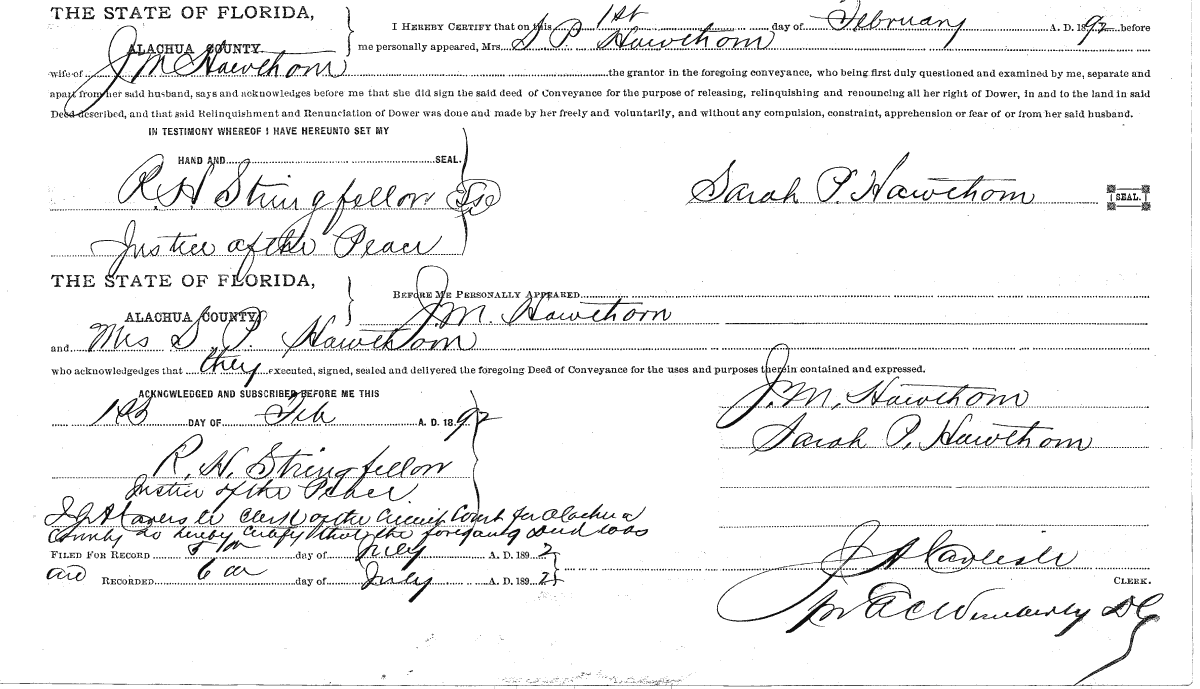 THE STATE OF FLORIDA,
ALACHUA COUNTY
I HEREBY CERTIFY that on this 1st day of February A. D. 1892 before
me personally appeared, Mrs. S P Hawthorn
wife of J M Hawthorn the grantor in the foregoing conveyance, who being first duly questioned and examined by me, separate and
apart from her said husband, says and acknowledges before me that she did sign the said deed of Conveyance for the purpose of releasing, relinquishing and renouncing all her right of Dower, in and to the land in said
Deed described, and that said Relinquishment and Renunciation of Dower was done and made by her freely and voluntarily, and without any compulsion, constraint, apprehension or fear of or from her said husband.
IN TESTIMONY WHEREOF I HAVE HEREUNTO SET MY
HAND AND SEAL.
R. H Stringfellow
Justice of the Peace
Sarah P. Hawthorn SEAL.
THE STATE OF FLORIDA,
ALACHUA COUNTY
BEFORE ME PERSONALLY APPEARED
J. M. Hawthorn
and Mrs S. P. Hawthorn
who acknowledgedges that they executed, signed, sealed and delivered the foregoing Deed of Conveyance for the uses and purposes therein contained and expressed.
ACKNOWLEDGED AND SUBSCRIBED BEFORE ME THIS
1st DAY OF Feb A. D. 1892
R. H. Stringfellow
Justice of the Peace
J. M. Hawthorn
Sarah P. Hawthorn
I J A Carlisle Clerk of the Circuit Court for Alachua
County do hereby certify that the foregoing deed was
FILED FOR RECORD day of July A. D. 1892
and RECORDED 6 day of July A. D. 1892
J A Carlisle
CLERK.
pr A C Wimberly DC